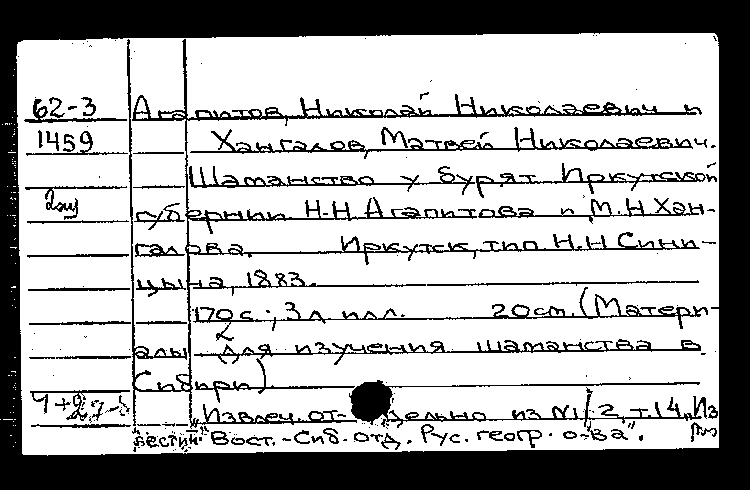 62-3 Агапитов, Николай Николаевич и
1459 Хангалов, Матвей Николаевич.
Шаманство у бурят Иркутской
губернии Н.Н Агапитова и М.Н Хан-
галова. Иркутск, тип Н.Н Сини-
цына, 1883.
170 с; 3 л. илл. 20 cm. (Матери-
алы для изучения шаманства в
Сибири)
"Извлеч. от- дельно из N1/2, т.14, "Из
вестий" Вост.-Сиб. отд. Рус. геогр. о-ва".